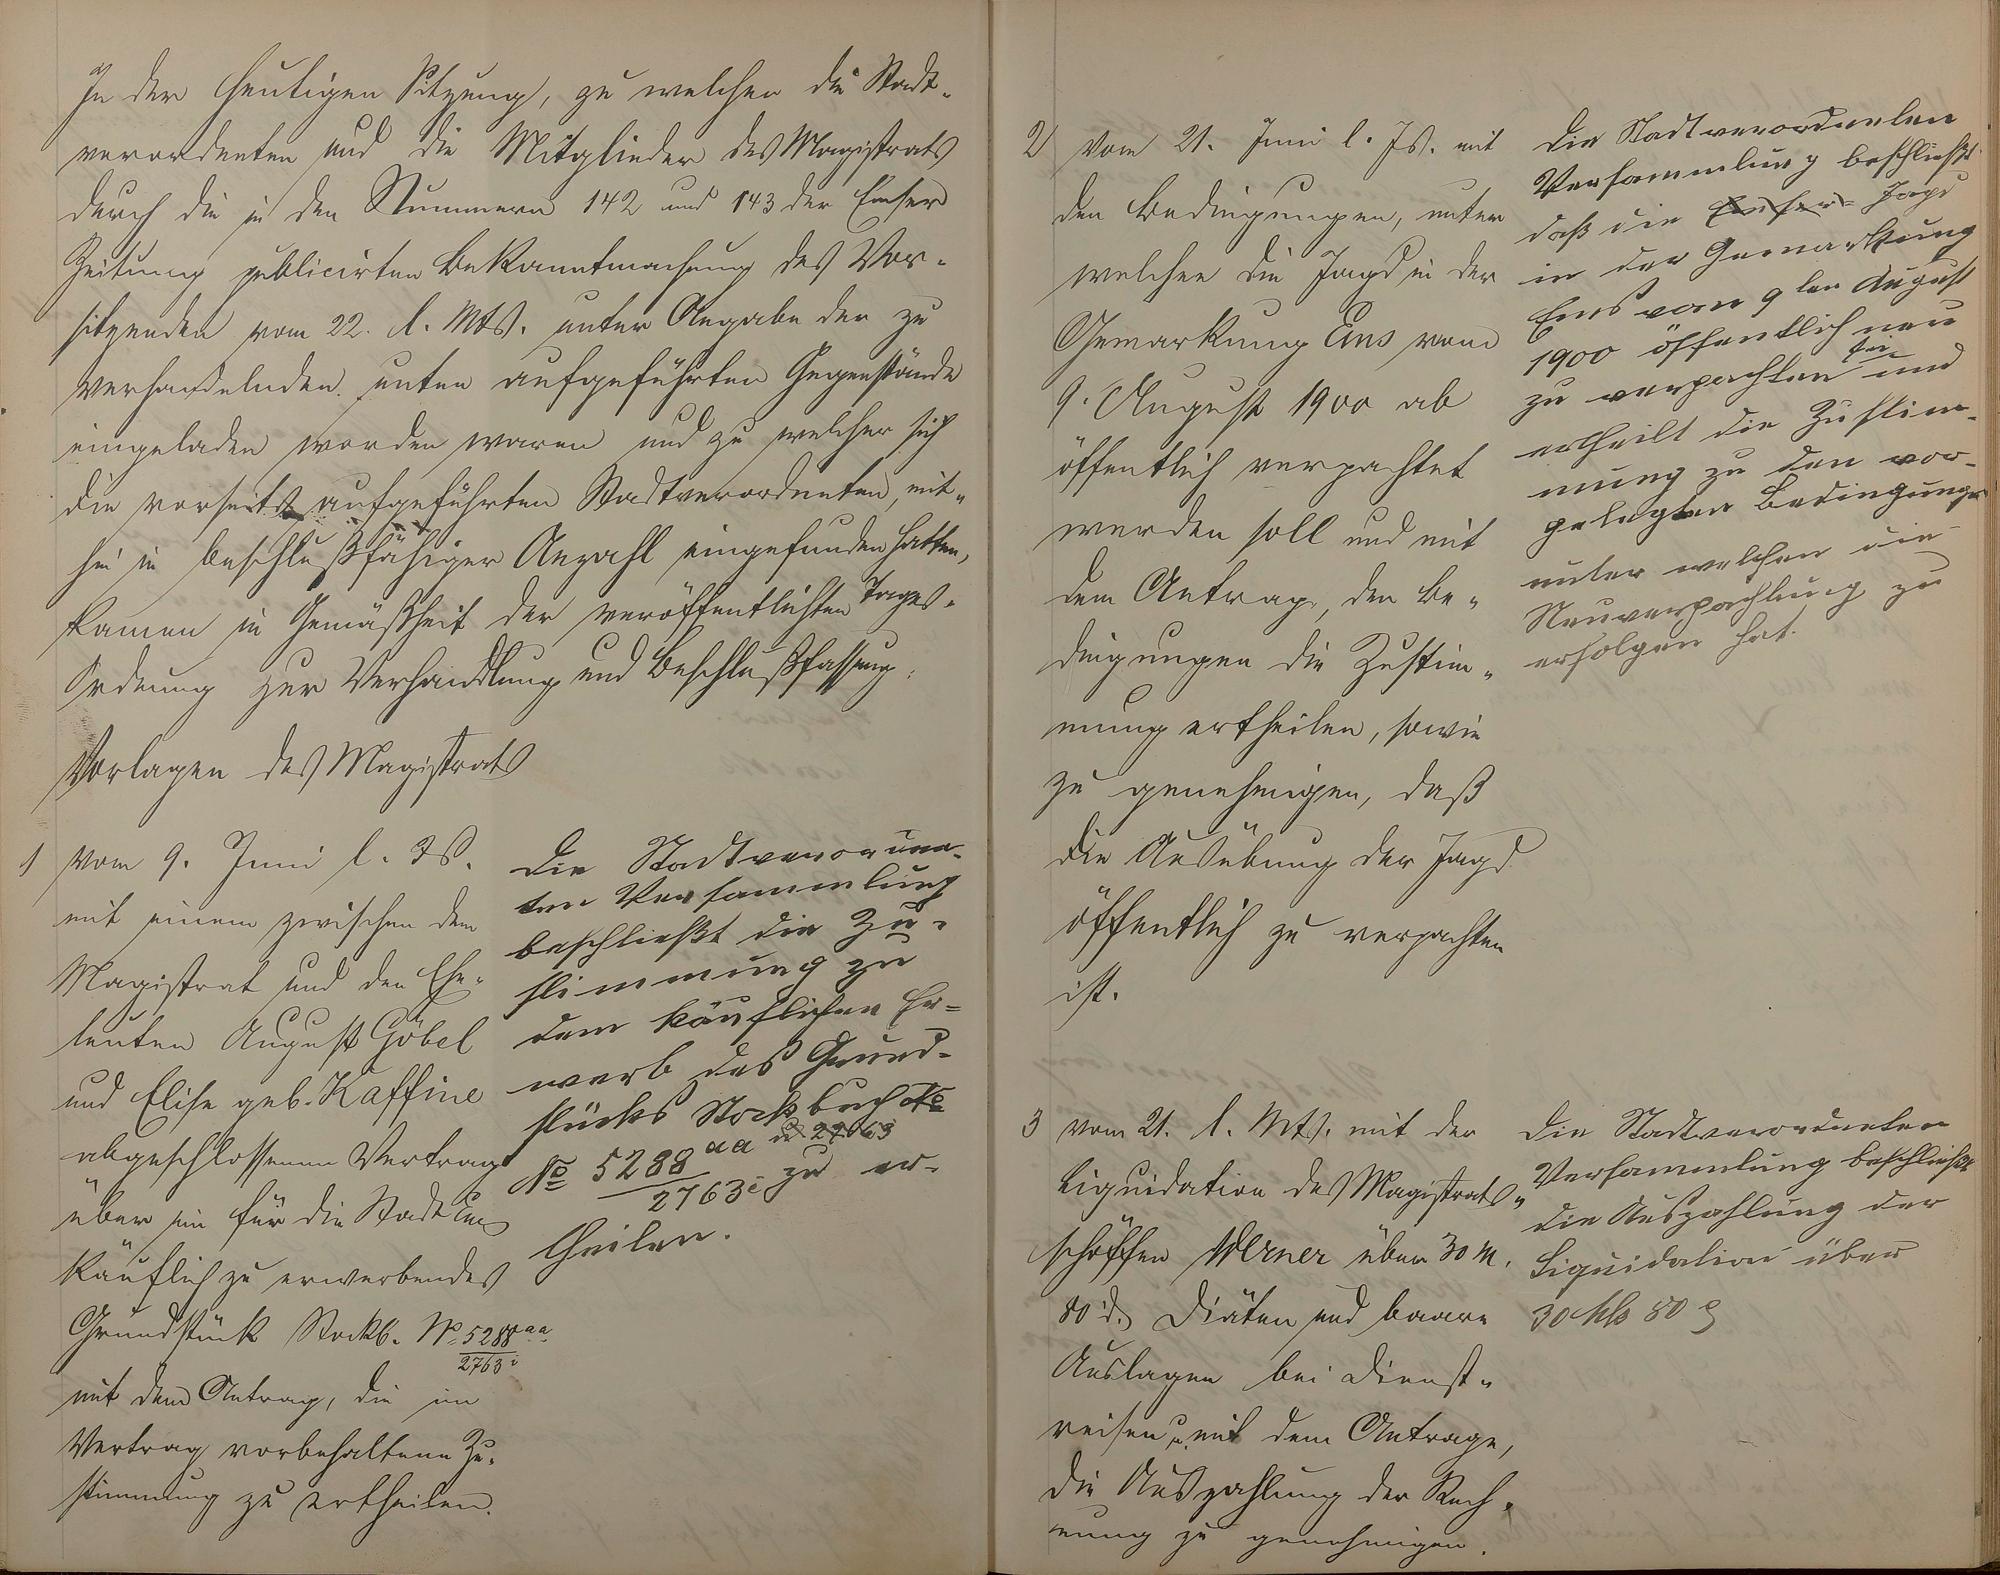 In der heutigen Sitzung, zu welcher die Stadt-
verordneten und die Mitglieder des Magistrats
durch die in den Nummern 142 und 143 der Emser
Zeitung publicirten Bekanntmachung des Vor-
sitzenden vom 22. l. Mts. unter Angabe der zu
verhandelnden unten aufgeführten Gegenstände
eingeladen worden waren und zu welcher sich
die vorseits aufgeführten Stadtverordneten, mit-
hin in beschlußfähiger Anzahl eingefunden hatten,
kamen in Gemäßheit der veröffentlichten Tages-
Ordnung zur Verhandlung und Beschlußfassung:
Vorlagen des Magistrats
1 vom 9. Juni l. Js.
mit einem zwischen dem
Magistrat und den Ehe-
leuten August Göbel
und Elise geb. Kaffine
abgeschlossenen Vertrag
über ein für die Stadt Ems
käuflich zu erwerbendes
Grundstück Stockb. No 5288 aa
2763 i
mit dem Antrag, die im
Vertrag vorbehaltene Zu-
stimmung zu ertheilen.
Die Stadtverordne-
ten Versammlung
beschließt die Zu-
stimmung zu
dem käuflichen Er-
werb des Grund-
stücks Stockbuch No
No 5288 aa
2763 i zu er-
theilen.
2) vom 21. Juni l. Js. mit
den Bedingungen, unter
welchen die Jagd in der
Gemarkung Ems vom
9. August 1900 ab
öffentlich verpachtet
werden soll und mit
dem Antrag, den Be-
dingungen die Zustim-
mung ertheilen, sowie
zu genehmigen, daß
die Ausübung der Jagd
öffentlich zu verpachten
ist.
Die Stadtverordneten
Versammlung beschließt
daß die Emser Jagd
in der Gemarkung
Ems vom 9ten August
1900 öffentlich neu
zu verpachten sei und
ertheilt die Zustim-
mung zu den vor-
gelegten Bedingungen
unter welchen die
Neuverpachtung zu
erfolgen hat.
3 vom 21. l. Mts. mit der
Liquidation des Magistrats-
schöffen Werner über 30 M.
80 d. Diäten und baare
Auslagen bei Dienst-
reisen u. mit dem Antrage,
die Auszahlung der Rech-
nung zu genehmigen.
Die Stadtverordneten
Versammlung beschließt
die Auszahlung der
Liquidation über
30 Mk 80 ₰